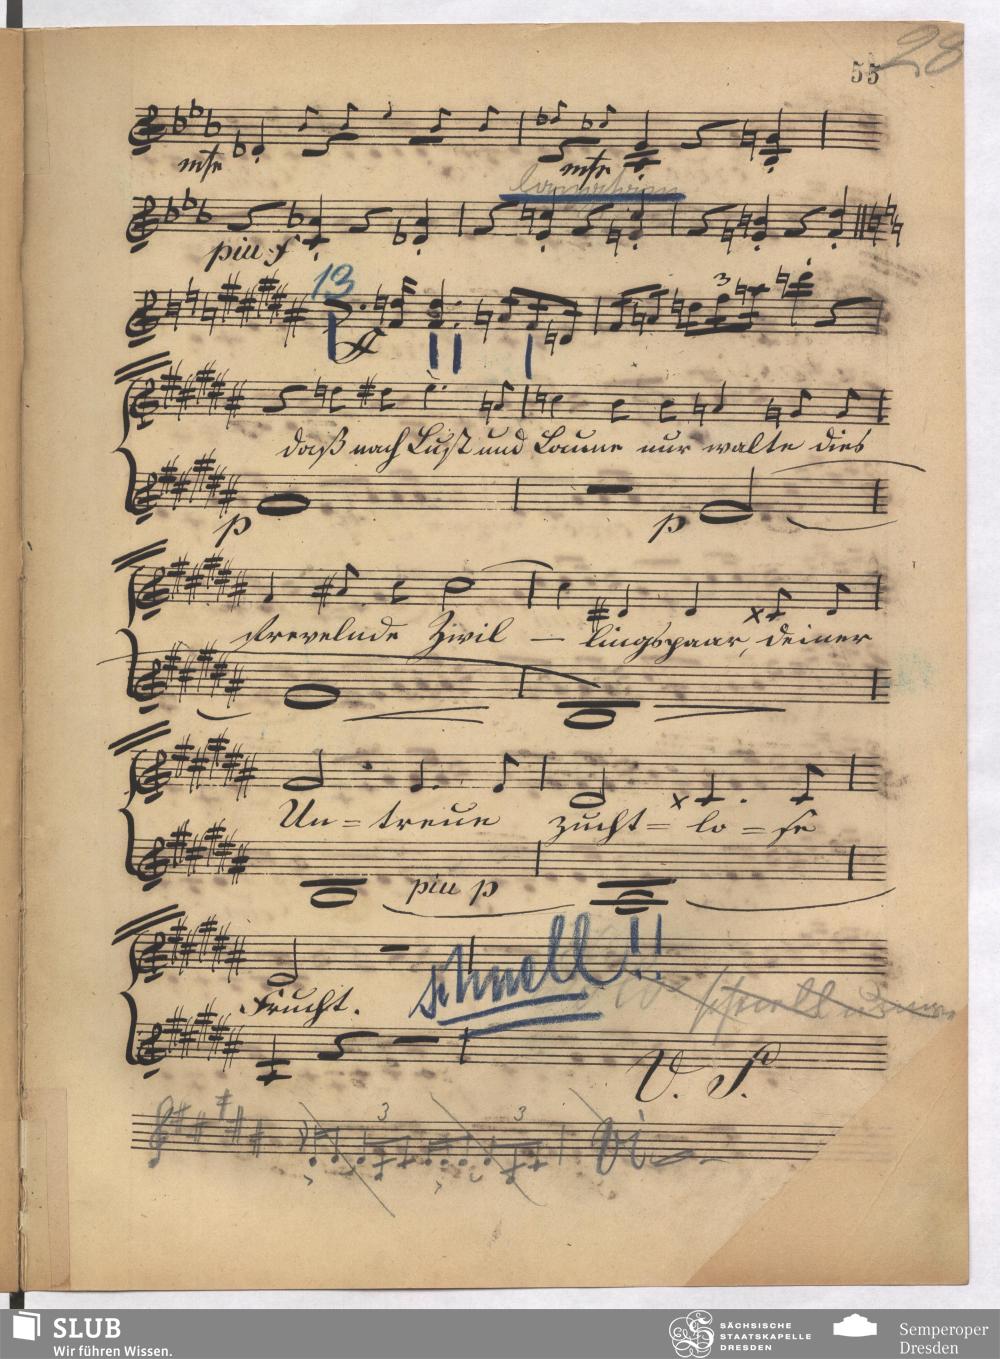 28
55
mfe
mfe
piu f
13
3
ff
daß nach Lust und Laune nur walte dies
p
p
frevelnde Zwil – lingspaar, deiner
Un = treue zucht = lo = se
piu p
schnell!!
Frucht.
V. S.
3
3
SLUB
Wir führen Wissen.
SÄCHSISCHE
STAATSKAPELLE
DRESDEN
Semperoper
Dresden